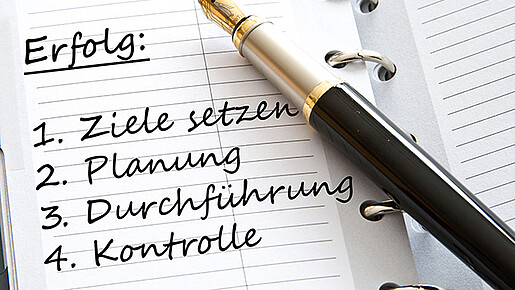 Erfolg:
1. Ziele setzen
2. Planung
3. Durchführung
4. Kontrolle